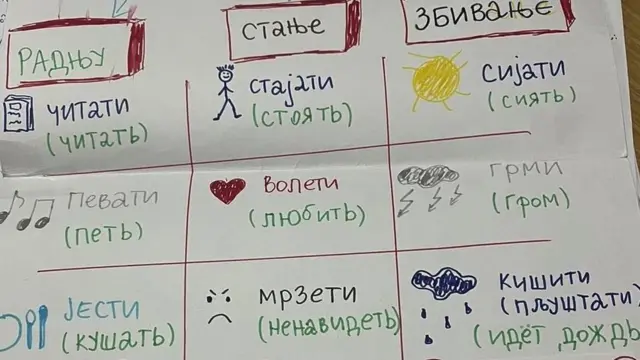 РАДЊУ
СТАЊЕ
ЗБИВАЊЕ
ЧИТАТИ
(ЧИТАТЬ)
СТАЈАТИ
(СТОЯТЬ)
СИЈАТИ
(СИЯТЬ)
ПЕВАТИ
(ПЕТЬ)
ВОЛЕТИ
(ЛЮБИТЬ)
ГРМИ
(ГРОМ)
ЈЕСТИ
(КУШАТЬ)
МРЗЕТИ
(НЕНАВИДЕТЬ)
КИШИТИ
(ПЉУШТАТИ)
(ИДЁТ ДОЖДЬ